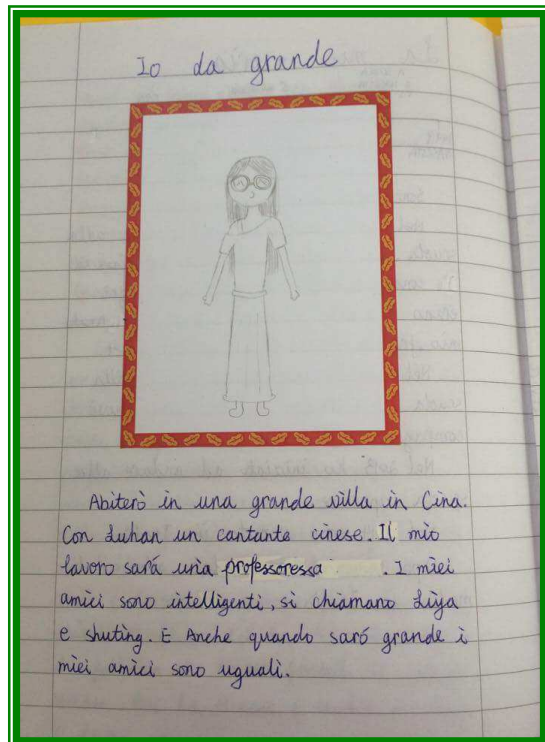 Io da grande
Abiterò in una grande villa in Cina.
Con Luhan un cantante cinese. Il mio
lavoro sará una professoressa . I miei
amici sono intelligenti, si chiamano Liya
e shuting. E Anche quando saró grande i
miei amici sono uguali.